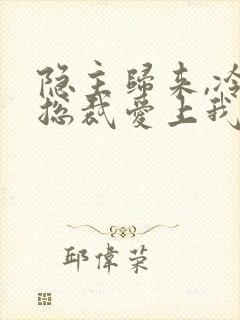 隐主歸来,冷
总裁愛上我
邱偉荣